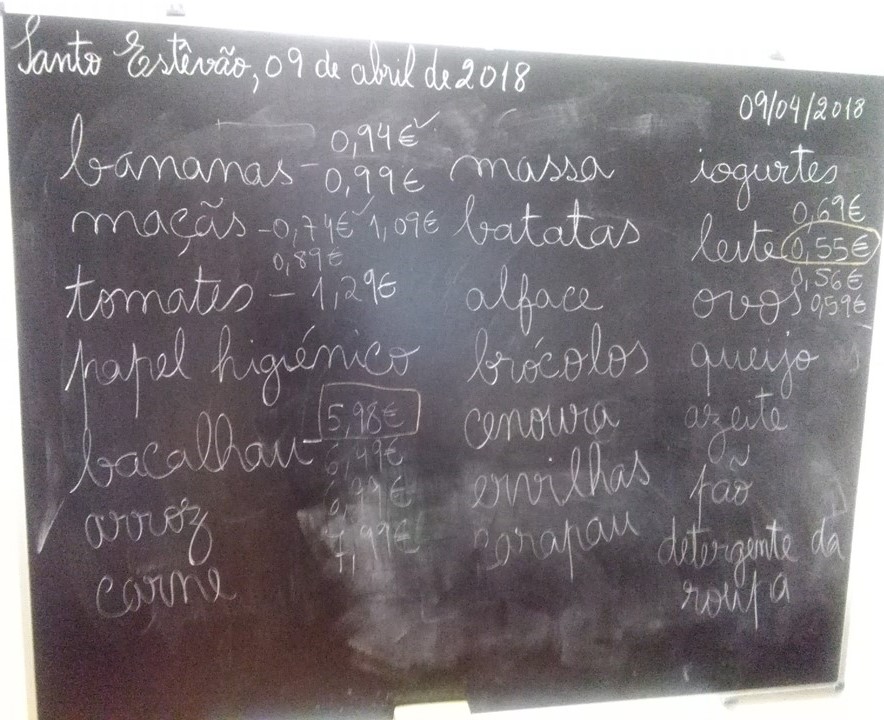 Santo Estêvão, 09 de abril de 2018
09/04/2018
0,94€ ✓
bananas - 0,99€
maçãs - 0,74€ ✓ 1,09€
0,89€
tomates - 1,29€
papel higiénico
5,98€
bacalhau - 6,49€
6,99€
arroz
7,99€
carne
massa
batatas
alface
brócolos
cenoura
ervilhas
carapau
iogurtes
0,69€
leite 0,55€
0,56€
ovos 0,59€
queijo
azeite
pão
detergente da
roupa